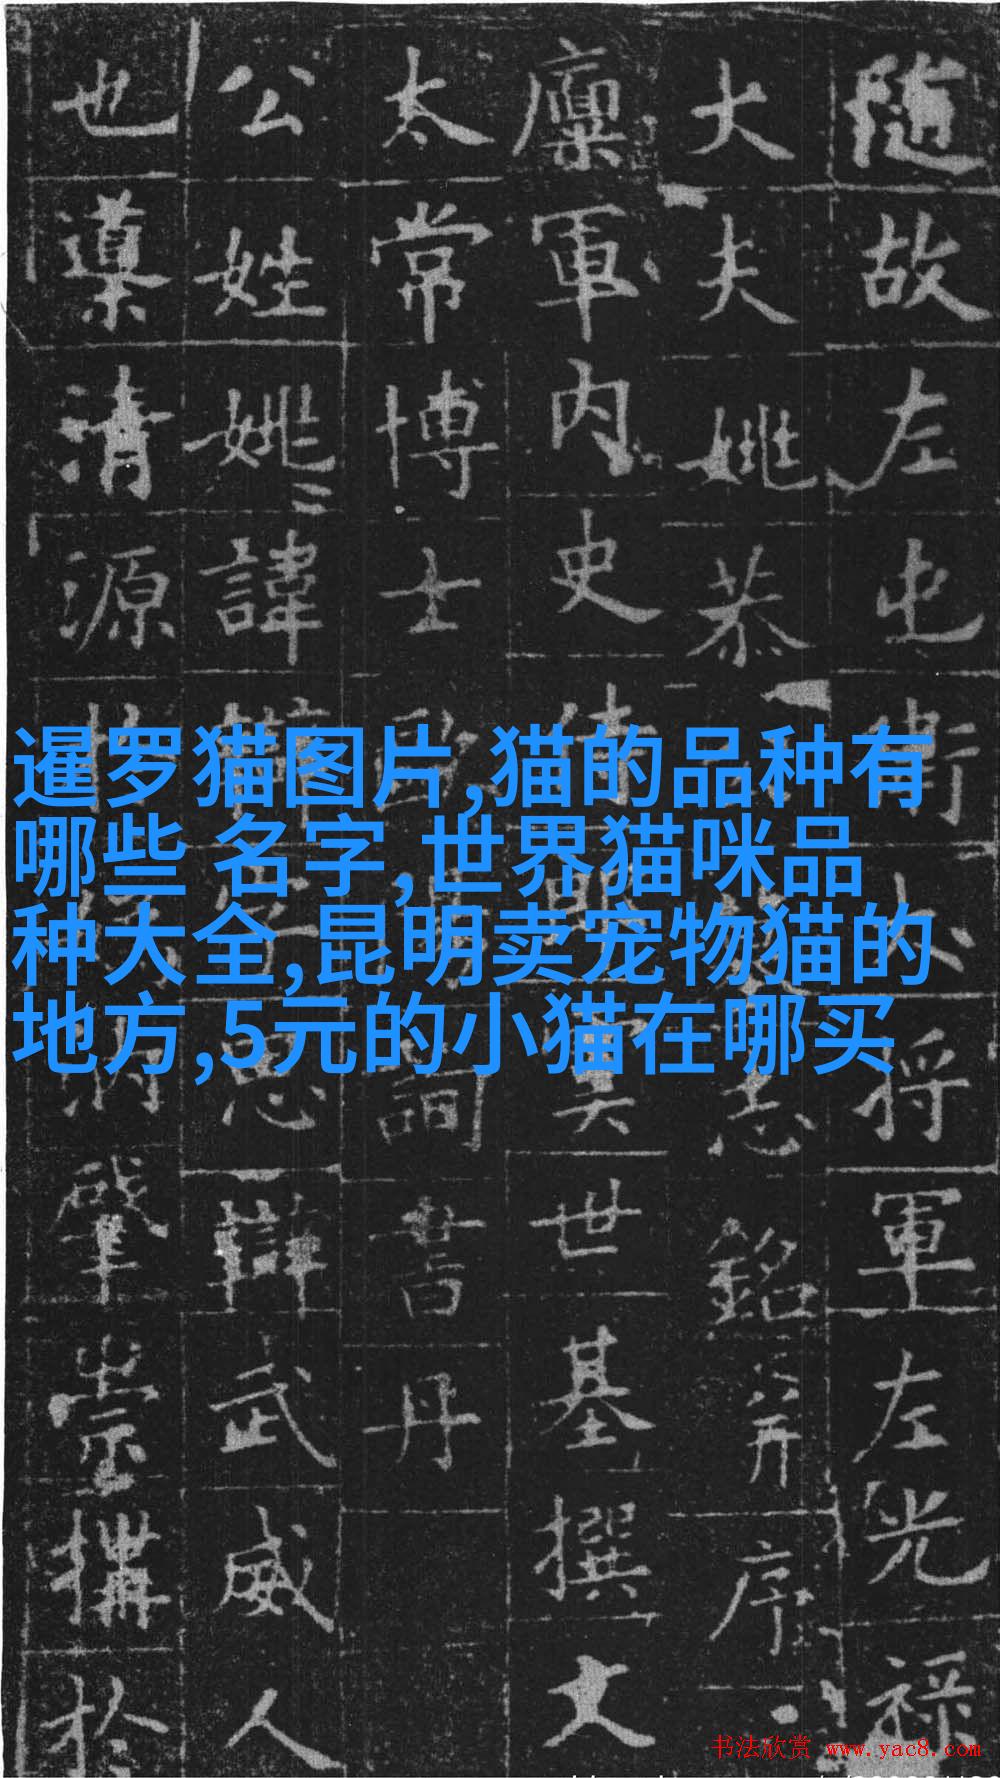 随故左屯衛大将軍左光禄
大夫姚恭志銘并序
麋軍内史侍世基撰文
太常博士詢書丹
公姓姚諱思辯武威人
也導清源汭肇崇構於
暹罗猫图片,猫的品种有
哪些 名字,世界猫咪品
种大全,昆明卖宠物猫的
地方,5元的小猫在哪买
书法欣赏 www.yac8.com